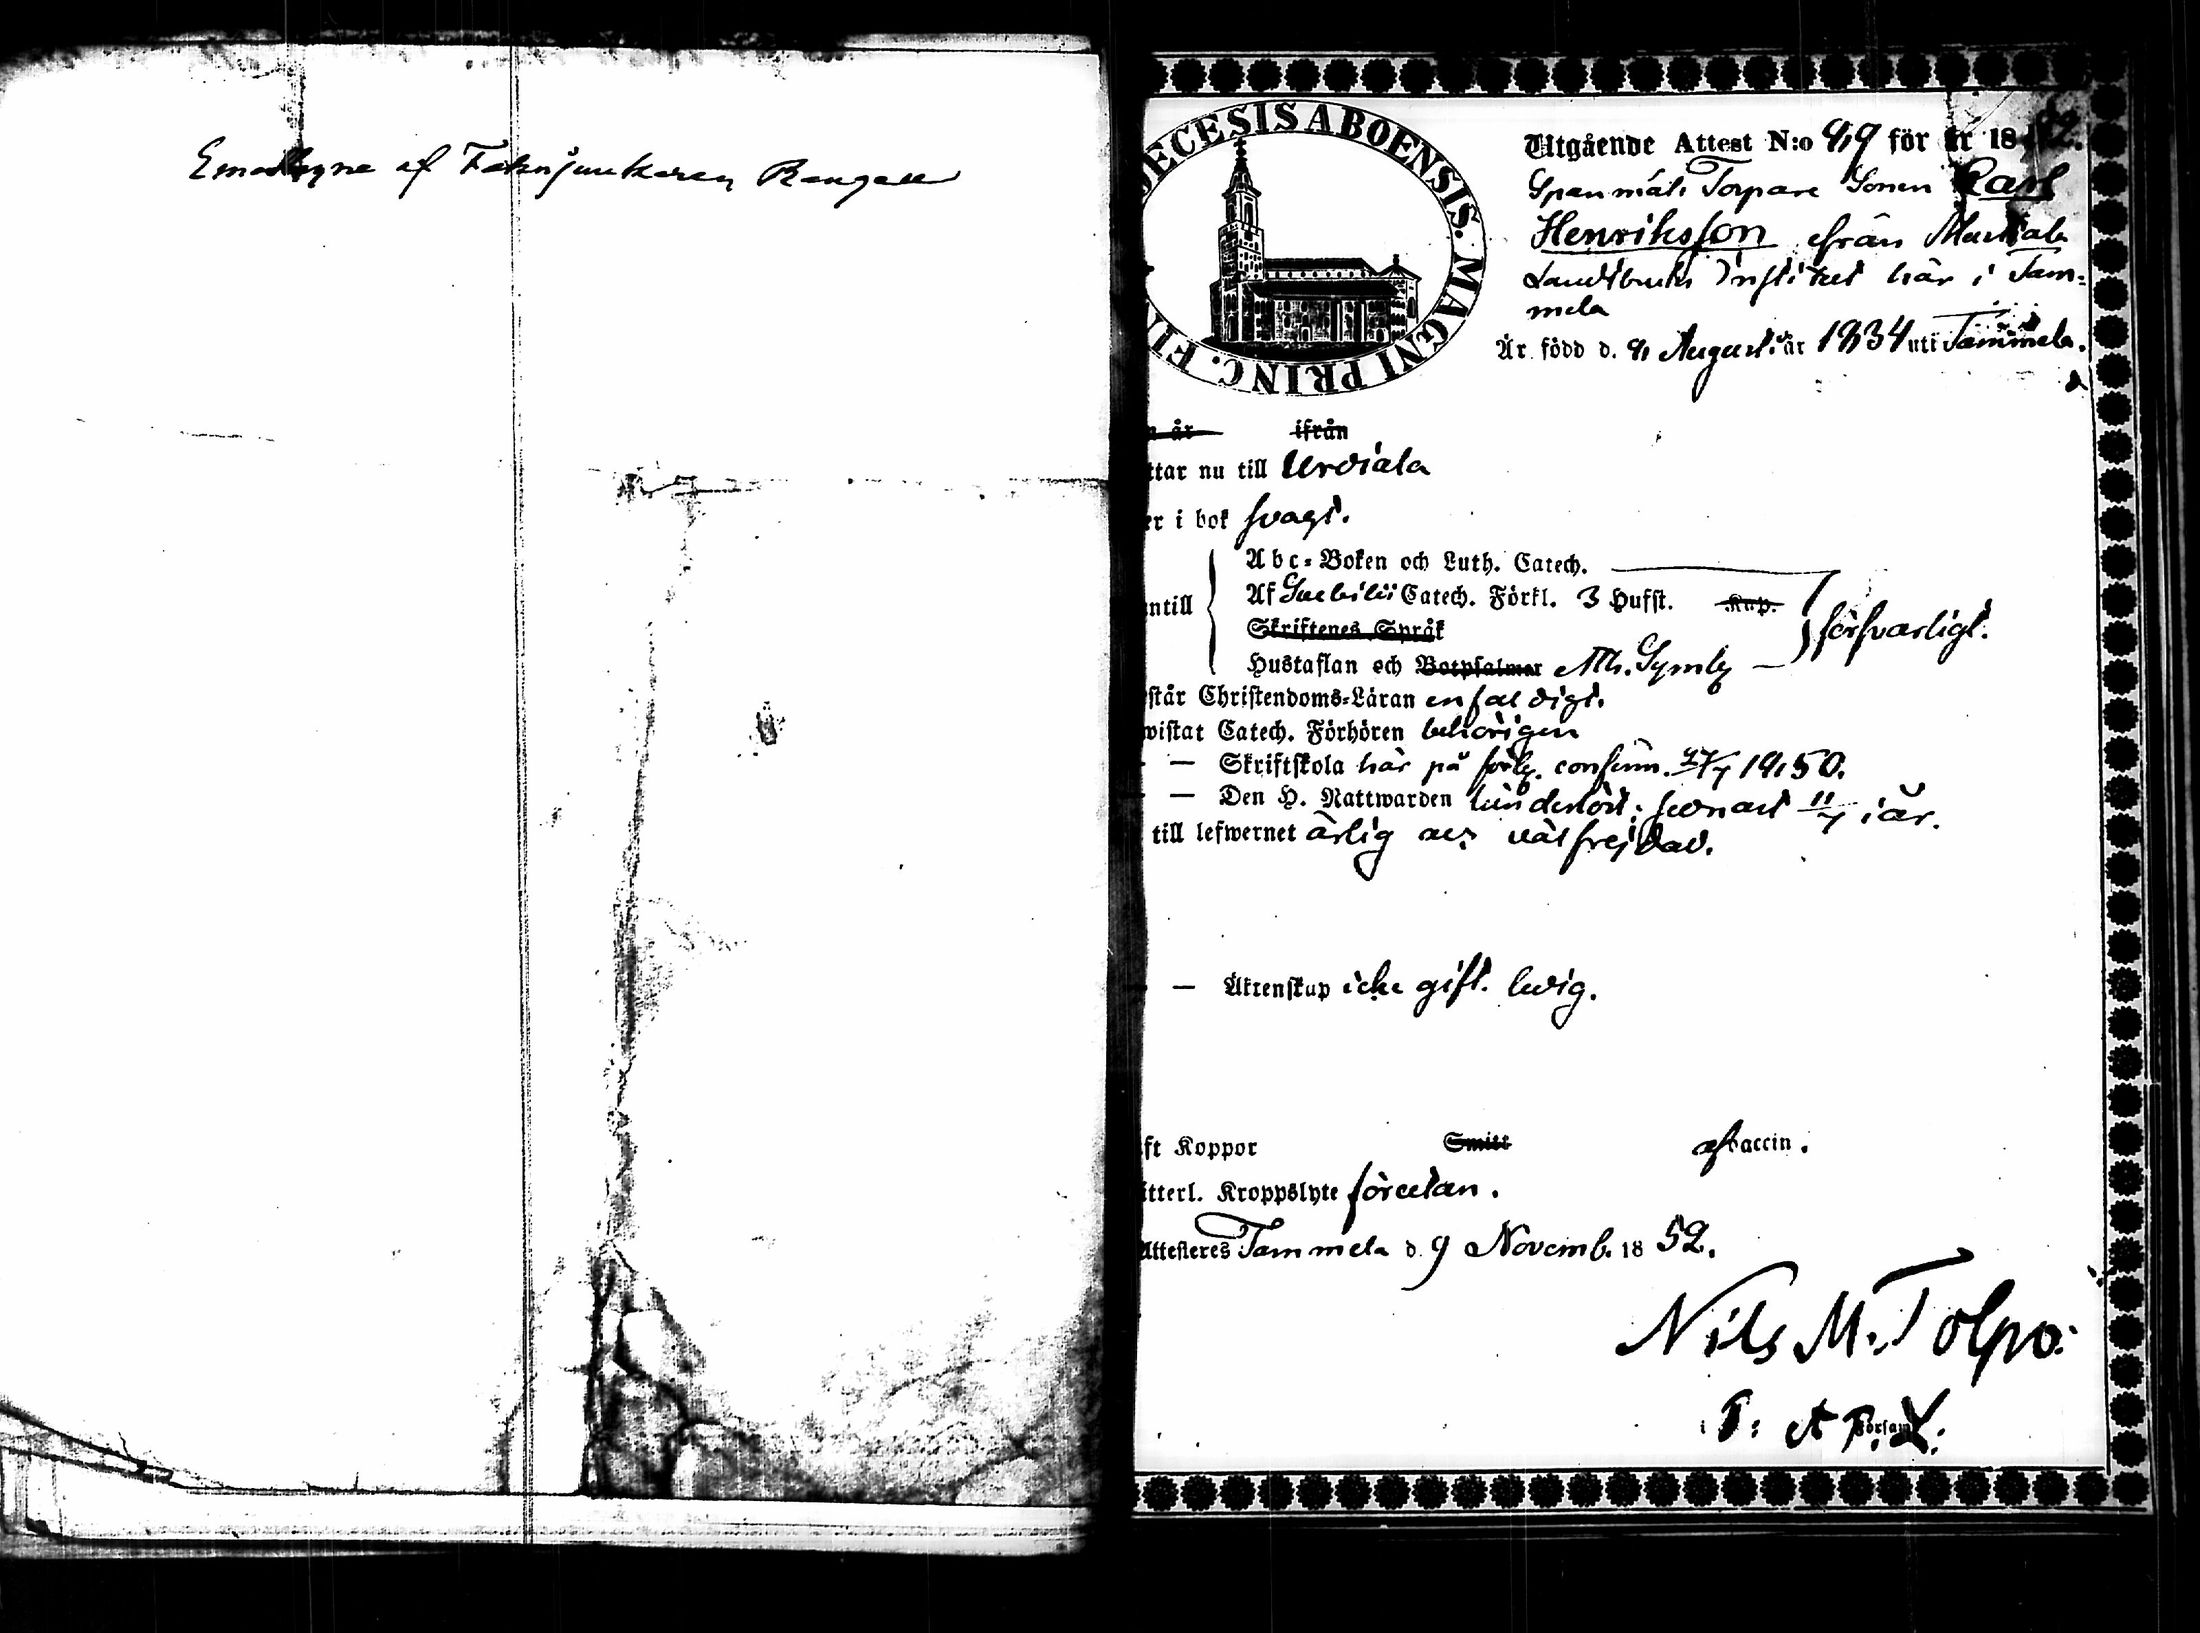 af Fahnjunkaren
DECESIS ABOENSIS. MAGNI PRINC. FI
Utgående Attest N:o 89 för år 1852.
Spanmåls Torpare Sonen Carl
Henriksson ifrån Mustiala
Landtbruks Institut här i Tam-
mela
Är född d. 8 August. år 1834 uti Tammela.
n år ifrån
ttar nu till Urdiala
er i bok svagt.
Abc-Boken och Luth. Catech.
Af Catech. Förkl. 3 Hufst. Kap.
ntill
försvarligt.
Skriftenes Språk
Hustaflan och Botpsalmer Ath. Symb.
står Christendoms-Läran enfaldigt.
wistat Catech. Förhören behörigen
— Skriftskola här på confirm. 1850.
— Den H. Nattwarden senast 11/7 i år.
till lefwernet ärlig och välfrejdad.
— Äktenskap icke gift. ledig.
ft Koppor Smitt af vaccin.
itterl. Kroppslyte
Attesteres Tammela d. 9 Novemb. 1852.
Nils M. Tolpo.
i T: A F. Försam